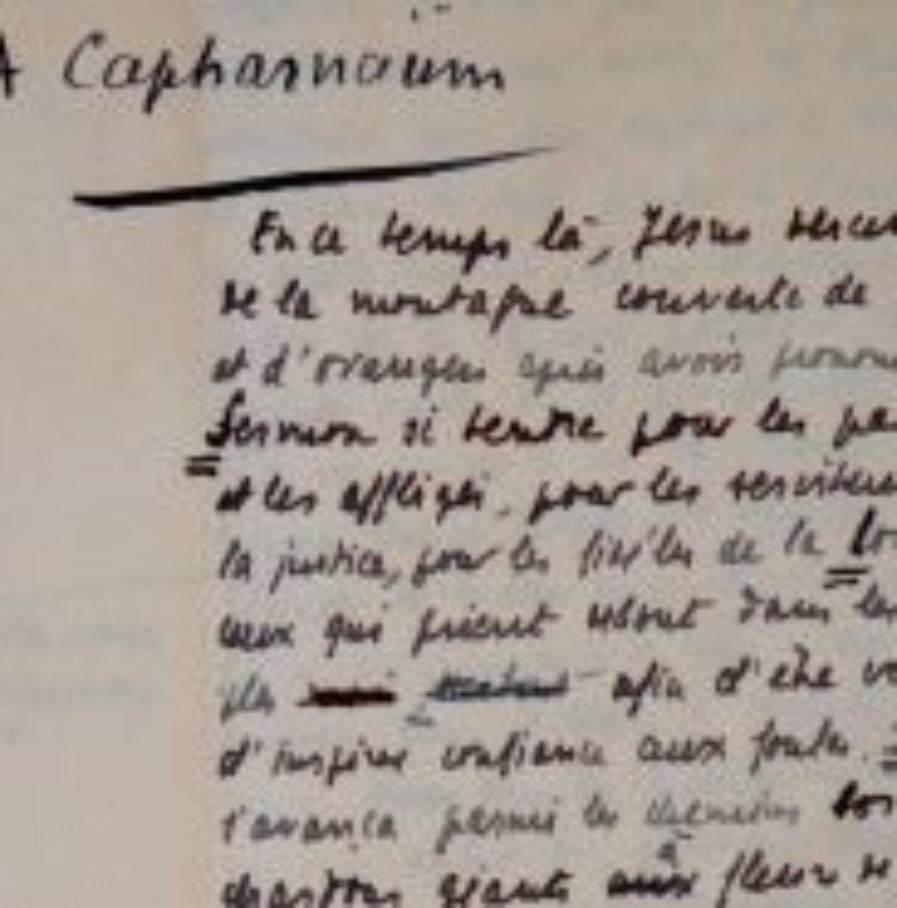 A Capharnaüm
En ce temps là, Jésus
de la montagne couverte de
et d'orangers après avoir
Sermon si tendre pour les
et les affligés, pour les
la justice, pour les de la
ceux qui prient debout dans les
afin d'être
d'inspirer confiance aux foules.
s'avança parmi les
chardons géants aux fleurs de